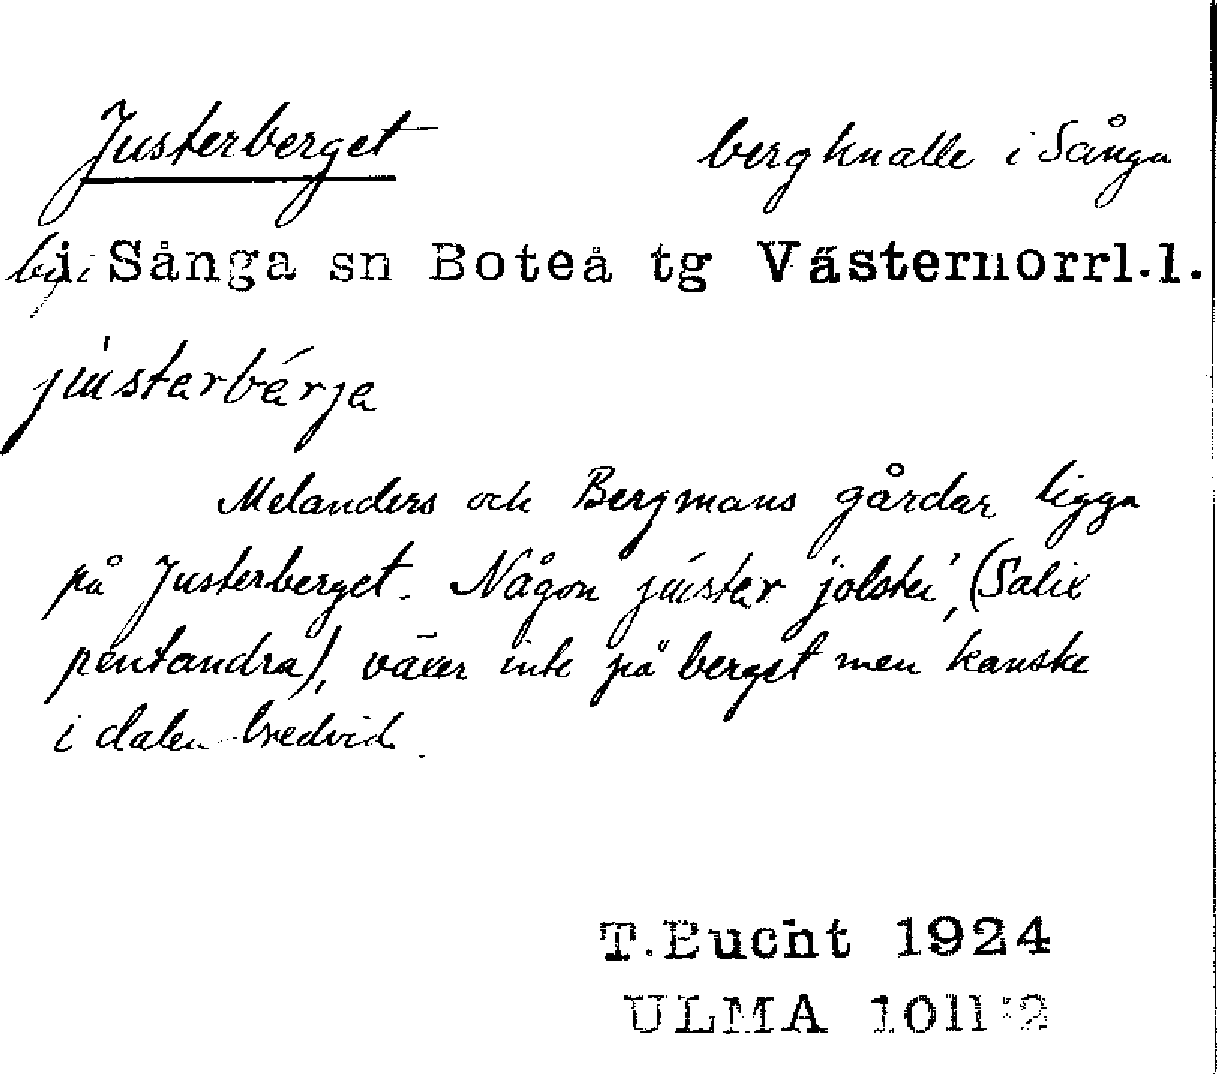 Justerberget bergknalle i Sånga
by i Sånga sn Boteå tg Västernorrl.l.
jústarbérja
Melanders och Bergmans gårdar ligga
på Justerberget. Någon jústar 'jolster', (Salix
pentandra), växer inte på berget men kanske
i dalen bredvid.
T.Bucht 1924
ULMA 1011:2